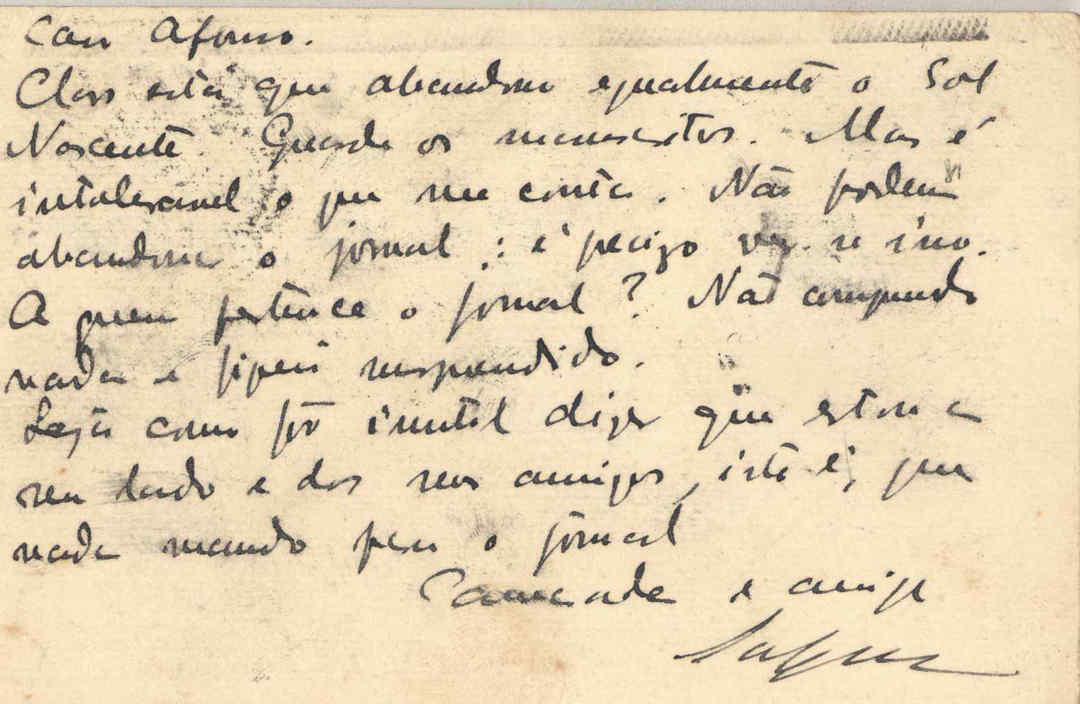 Caro Afonso.
Claro está que abandono egualmente o Sol
Nascente. Guarde os manuscritos. Mas é
intoleravel o que me conta. Não podem
abandonar o jornal: é preciso ver isso.
A quem pertence o jornal? Não compreendo
nada e fiquei surpreendido.
Seja como fôr inutil dizer que estou a
seu lado e dos seus amigos, isto é, que
nada mando para o jornal
Camarada e amigo